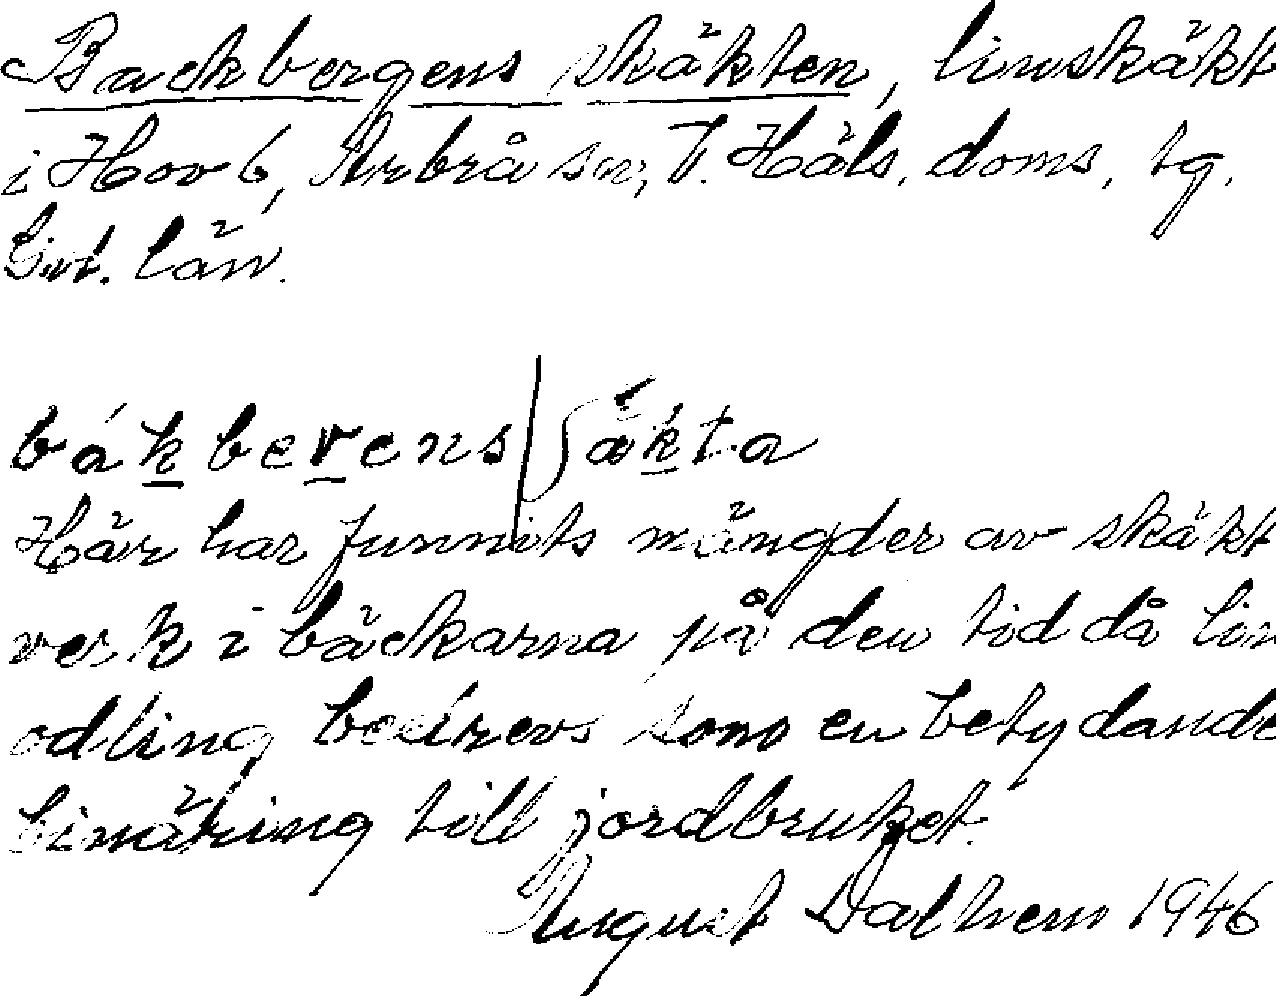 Backbergens skäkten, linskäkt
i Hov 6, Arbrå sn, V. Häls. doms. tg.
Gvl. län.
bákbevens|ʃäkta
Här har funnits mängder av skäkt
verk i bäckarna på den tid då lin
odling bedrevs som en betydande
binäring till jordbruket.
August Dalhem 1946